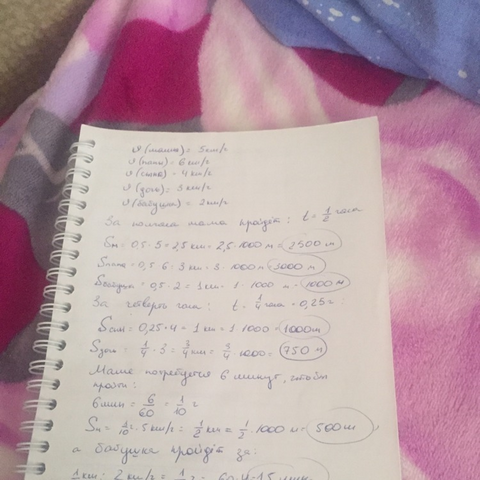 υ (мамы) = 5 км/г
υ (папы) = 6 км/г
υ (сына) = 4 км/г
υ (дочь) = 3 км/г
υ (бабушка) = 2 км/г
За полчаса мама пройдёт: t = 1/2 часа
Sм = 0,5 · 5 = 2,5 км = 2,5 · 1000 м = 2500 м
Sпапа = 0,5 · 6 = 3 км = 3 · 1000 м = 3000 м
Sбабушка = 0,5 · 2 = 1 км = 1 · 1000 м = 1000 м
За четверть часа: t = 1/4 часа = 0,25 г
Sсын = 0,25 · 4 = 1 км = 1 · 1000 = 1000 м
Sдочь = 1/4 · 3 = 3/4 км = 3/4 · 1000 = 750 м
Маме потребуется 6 минут, чтобы
пройти:
6 мин = 6/60 = 1/10 г
Sм = 1/10 г · 5 км/г = 1/2 км = 1/2 · 1000 м = 500 м
а бабушка пройдёт за:
1/2 км : 2 км/г = 1/4 г = 60 : 4 = 15 мин